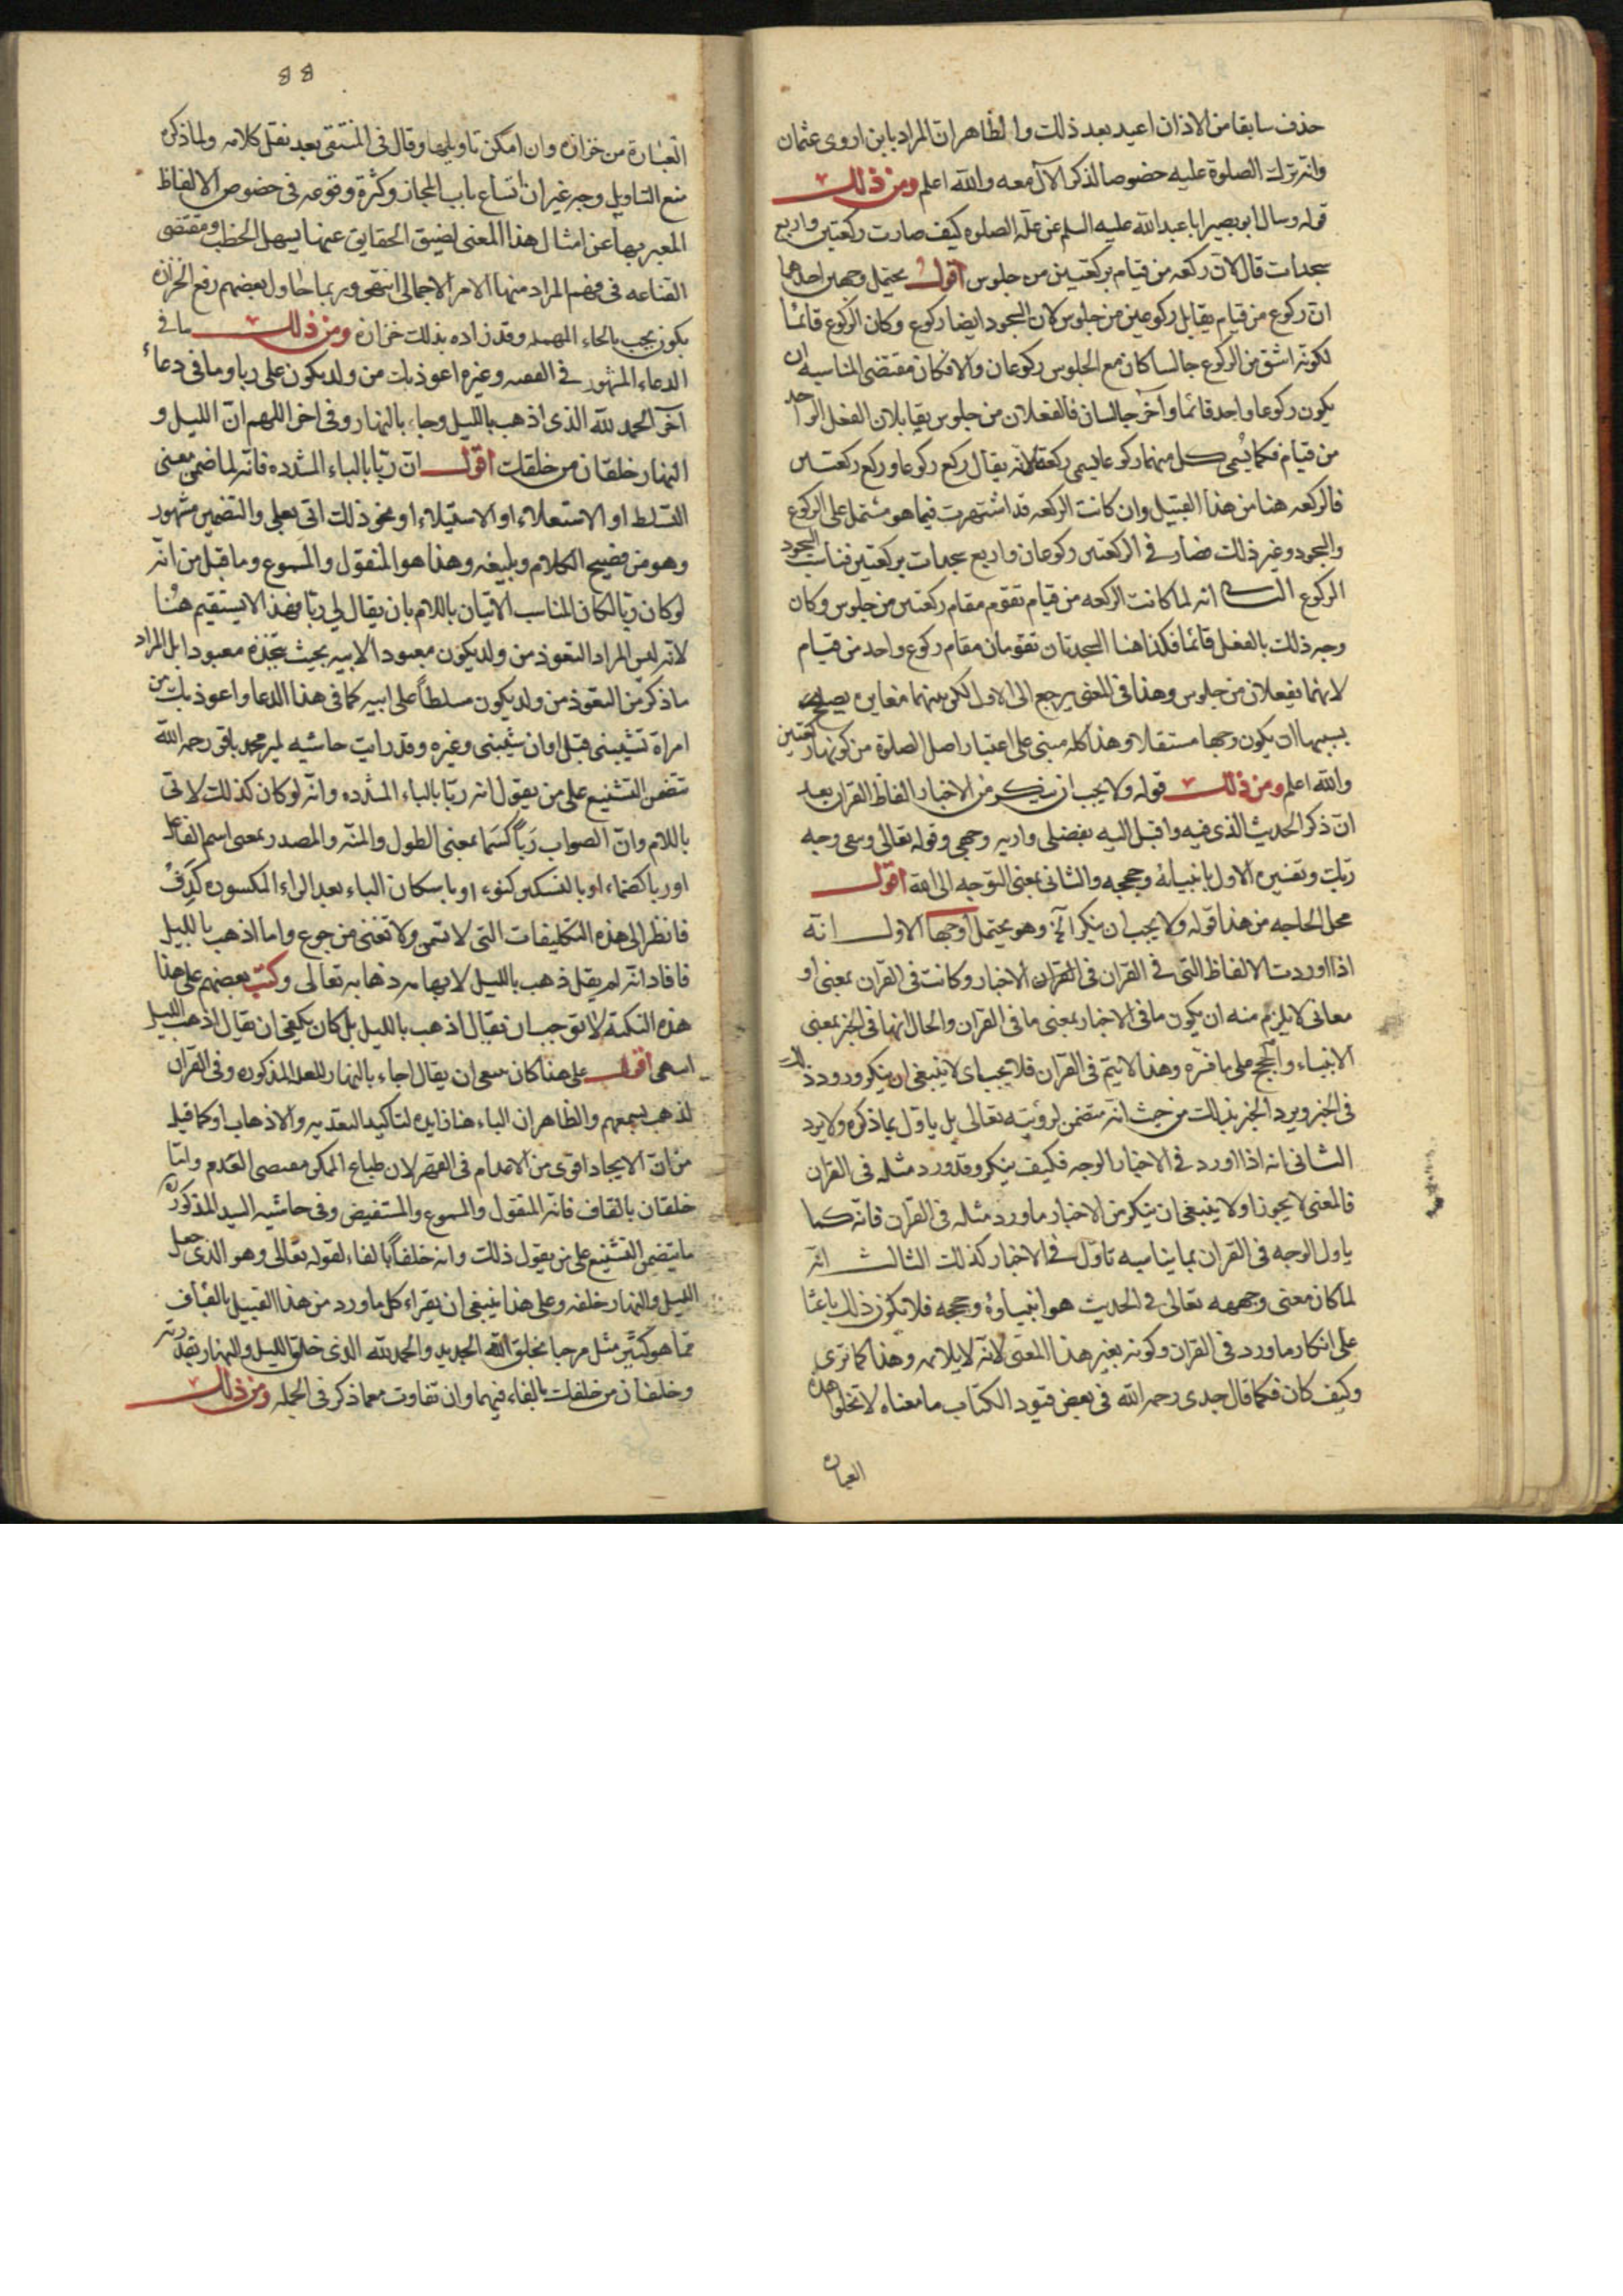 حذف سابقا من الاذان اعيد بعد ذلك والظاهر ان المراد بابن اروى عثمان
وانه ترك الصلوة عليه خصوصا لذكر الآل معه والله اعلم ومن ذلك
قوله وسال ابو بصير ابا عبد الله عليه السلم عن علة الصلوه كيف صارت ركعتين واربع
سجدات قال لان ركعه من قيام بركعتين من جلوس اقول يحتمل وجهين احدهما
ان ركوع من قيام يقابل ركوعين من جلوس لان السجود ايضا ركوع وكان الركوع قائما
لكونه اشق من الركوع جالسا كان مع الجلوس ركوعان والا فكان مقتضى المناسبه ان
يكون ركوعا واحد قائما وآخر جالسا فالفعلان من جلوس يقابلان الفعل الواحد
من قيام فكما يسمى كل منهما ركوعا يسمى ركعة لانه يقال ركع ركوعا وركع ركعتين
فالركعه هنا من هذا القبيل وان كانت الركعه قد اشتهرت فيما هو مشتمل على الركوع
والسجود وغير ذلك فصار في الركعتين ركوعان واربع سجدات بركعتين فناسب السجود
الركوع الثاني انه لما كانت الركعه من قيام تقوم مقام ركعتين من جلوس وكان
وجه ذلك بالفعل قائما فكذا هنا السجدتان تقومان مقام ركوع واحد من قيام
لانهما يفعلان من جلوس وهذا في المعنى يرجع الى الاول لكن بينهما مغايره يصلح
بسببها ان يكون وجها مستقلا وهذا كله مبني على اعتبار اصل الصلوة من كونها ركعتين
والله اعلم ومن ذلك قوله ولا يجب ان ينكر من الاخبار الفاظ القران بعد
ان ذكر الحديث الذي فيه واقبل اليه بفضلي واريه وجهي وقوله تعالى وسعى وجه
ربك وتفسيره الاول بانبيائه وحججه والثاني بمعنى التوجه الى الله اقول
محل الحاجه من هذا قوله ولا يجب ان ينكر الخ وهو يحتمل اوجها الاول انه
اذا اوردت الالفاظ التي في القران في الاخبار وكانت في القران بمعنى او
معاني لا يلزم منه ان يكون ما في الاخبار بمعنى ما في القران والحال انها في الخبر بمعنى
الانبياء والحجج على ما فسره وهذا لا يتم في القرآن فلا يجب اي لا ينبغي ان ينكر ورود ذلك
في الخبر ويرد الخبر بذلك من حيث انه متضمن لرؤيته تعالى بل ياول بما ذكره ولا يرد
الثاني انه اذا اورد في الاخبار الوجه فكيف ينكر وقد ورد مثله في القران
فالمعنى لا يجوز او لا ينبغي ان ينكر من الاخبار ما ورد مثله في القرآن فانه كما
ياول الوجه في القران بما يناسبه تاول في الاخبار كذلك الثالث انه
لما كان معنى وجهه تعالى في الحديث هو انبياوه وحججه فلا يكون ذلك باعثا
على انكار ما ورد في القران وكونه بغير هذا المعنى لانه لا يلايمه وهذا كما ترى
وكيف كان فكما قال جدي رحمه الله في بعض قيود الكتاب ما معناه لا تخلو هذه
العباره
88
العبارة من خزازه وان امكن تاويلها وقال في المنتقى بعد نقل كلامه ولما ذكره
مع التاويل وجه غير ان اتساع باب المجاز وكثرة وقوعه في خصوص الالفاظ
المعبر بها عن امثال هذا المعنى لضيق الحقايق عنها يسهل الخطب ومقتضى
القناعه في فهم المراد منها الامر الاجمالي انتهى وربما حاول بعضهم رفع الخزازه
بكون يجب بالحاء المهمله وقد زاده بذلك خزازه ومن ذلك ما في
الدعاء المشهور في الفقيه وغيره اعوذ بك من ولد يكون علي ربا وما في دعاء
آخر الحمد لله الذي اذهب بالليل وجاء بالنهار وفي اخر اللهم ان الليل و
النهار خلقان من خلقك اقول ان ربا بالباء المشدده فانه لما ضمن معنى
التسلط او الاستعلاء او الاستيلاء او نحو ذلك اتى بعلى والتضمين مشهور
وهو من فصيح الكلام وبليغه وهذا هو المنقول والمسموع وما قيل من انه
لو كان ربا لكان المناسب الاتيان باللام بان يقال لي ربا فهذا لا يستقيم هنا
لانه ليس المراد التعوذ من ولد يكون معبودا لابيه بحيث يتخذه معبودا بل المراد
ما ذكر من التعوذ من ولد يكون مسلطا على ابيه كما في هذا الدعا واعوذ بك من
امراة تشيبني قبل اوان شيبتي وغيره وقد رايت حاشيه لمير محمد باقر رحمه الله
تتضمن التشنيع على من يقول انه ربا بالباء المشدده وانه لو كان كذلك لاتى
باللام وان الصواب رباً كسما بمعنى الطول والمنه والمصدر بمعنى اسم الفاعل
فانظر الى هذه التكليفات التي لا تسمن ولا تغني من جوع واما اذهب بالليل
فافاد انه لم يقل ذهب بالليل لايهامه ذهابه تعالى وكتب بعضهم على هذا
هذه النكتة لا توجب ان يقال اذهب بالليل بل كان يكفي ان يقال اذهب الليل
انتهى اقول على هذا كان ينبغي ان يقال اجاء بالنهار للعلة المذكوره وفي القرآن
لذهب بسمعهم والظاهر ان الباء هنا زايده لتاكيد التعديه والاذهاب او كما قيل
من ان الايجاد اقوى من الاعدام في القهر لان طباع الممكن مقتضى العدم واما
خلقان بالقاف فانه المنقول والمسموع والمستفيض وفي حاشيه السيد المذكوره
ما يتضمن التشنيع على من يقول ذلك وانه خلفاً بالفاء لقوله تعالى وهو الذي جعل
الليل والنهار خلفه وعلى هذا ينبغي ان يقراء كل ما ورد من هذا القبيل بالقاف
مما هو كثير مثل مرحبا بخلق الله الجديد والحمد لله الذي خلق الليل والنهار بقدرته
وخلفان من خلفك بالفاء فيهما وان تفاوت معما ذكر في الجمله ومن ذلك